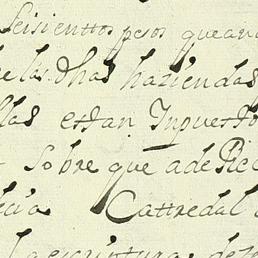 seisientos pesos que an
las dhas haziendas
llas estan Inpuesto
sobre que adeRec
cia Cattredal
la escriptura de